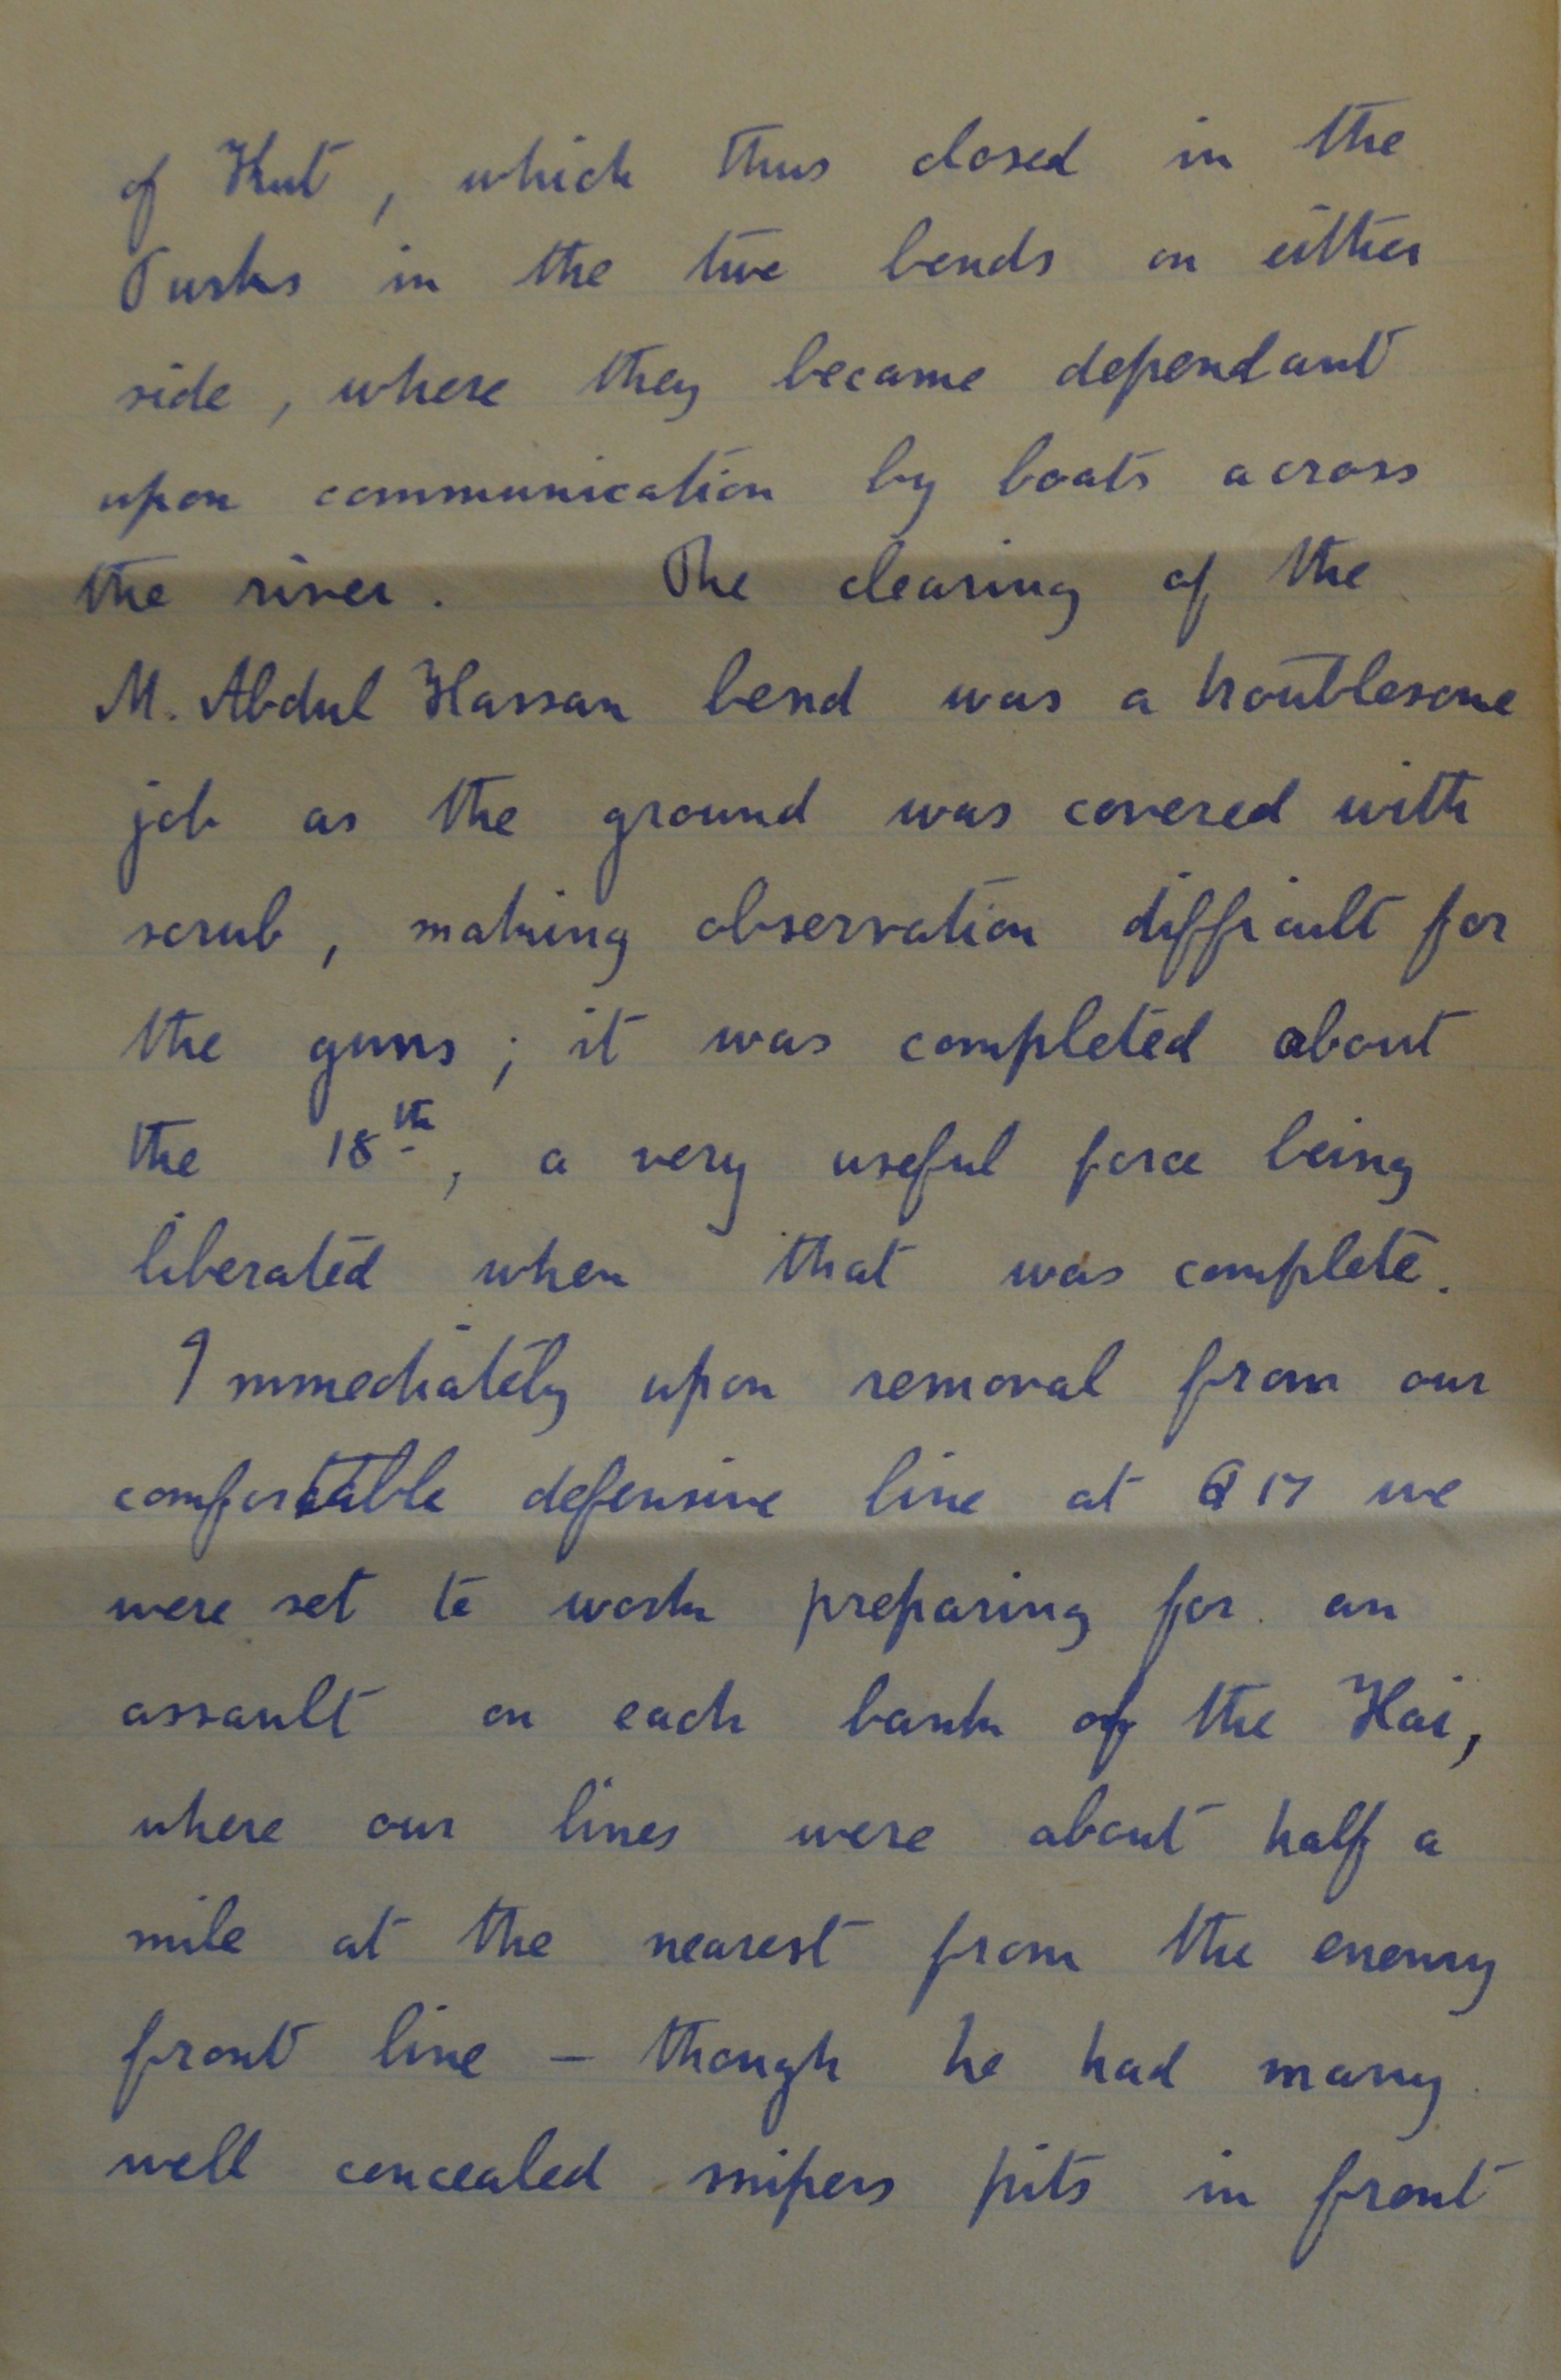 of Kut, which thus closed in the
Turks in the two bends on either
side, where they became dependant
upon communication by boats across
the river. The clearing of the
M. Abdul Hassan bend was a troublesome
job as the ground was covered with
scrub, making observation difficult for
the guns; it was completed about
the 18th, a very useful force being
liberated when that was complete.
Immediately upon removal from our
comfortable defensive line at Q17 we
were set to work preparing for an
assault on each bank of the Hai,
where our lines were about half a
mile at the nearest from the enemy
front line - though he had many
well concealed snipers pits in front